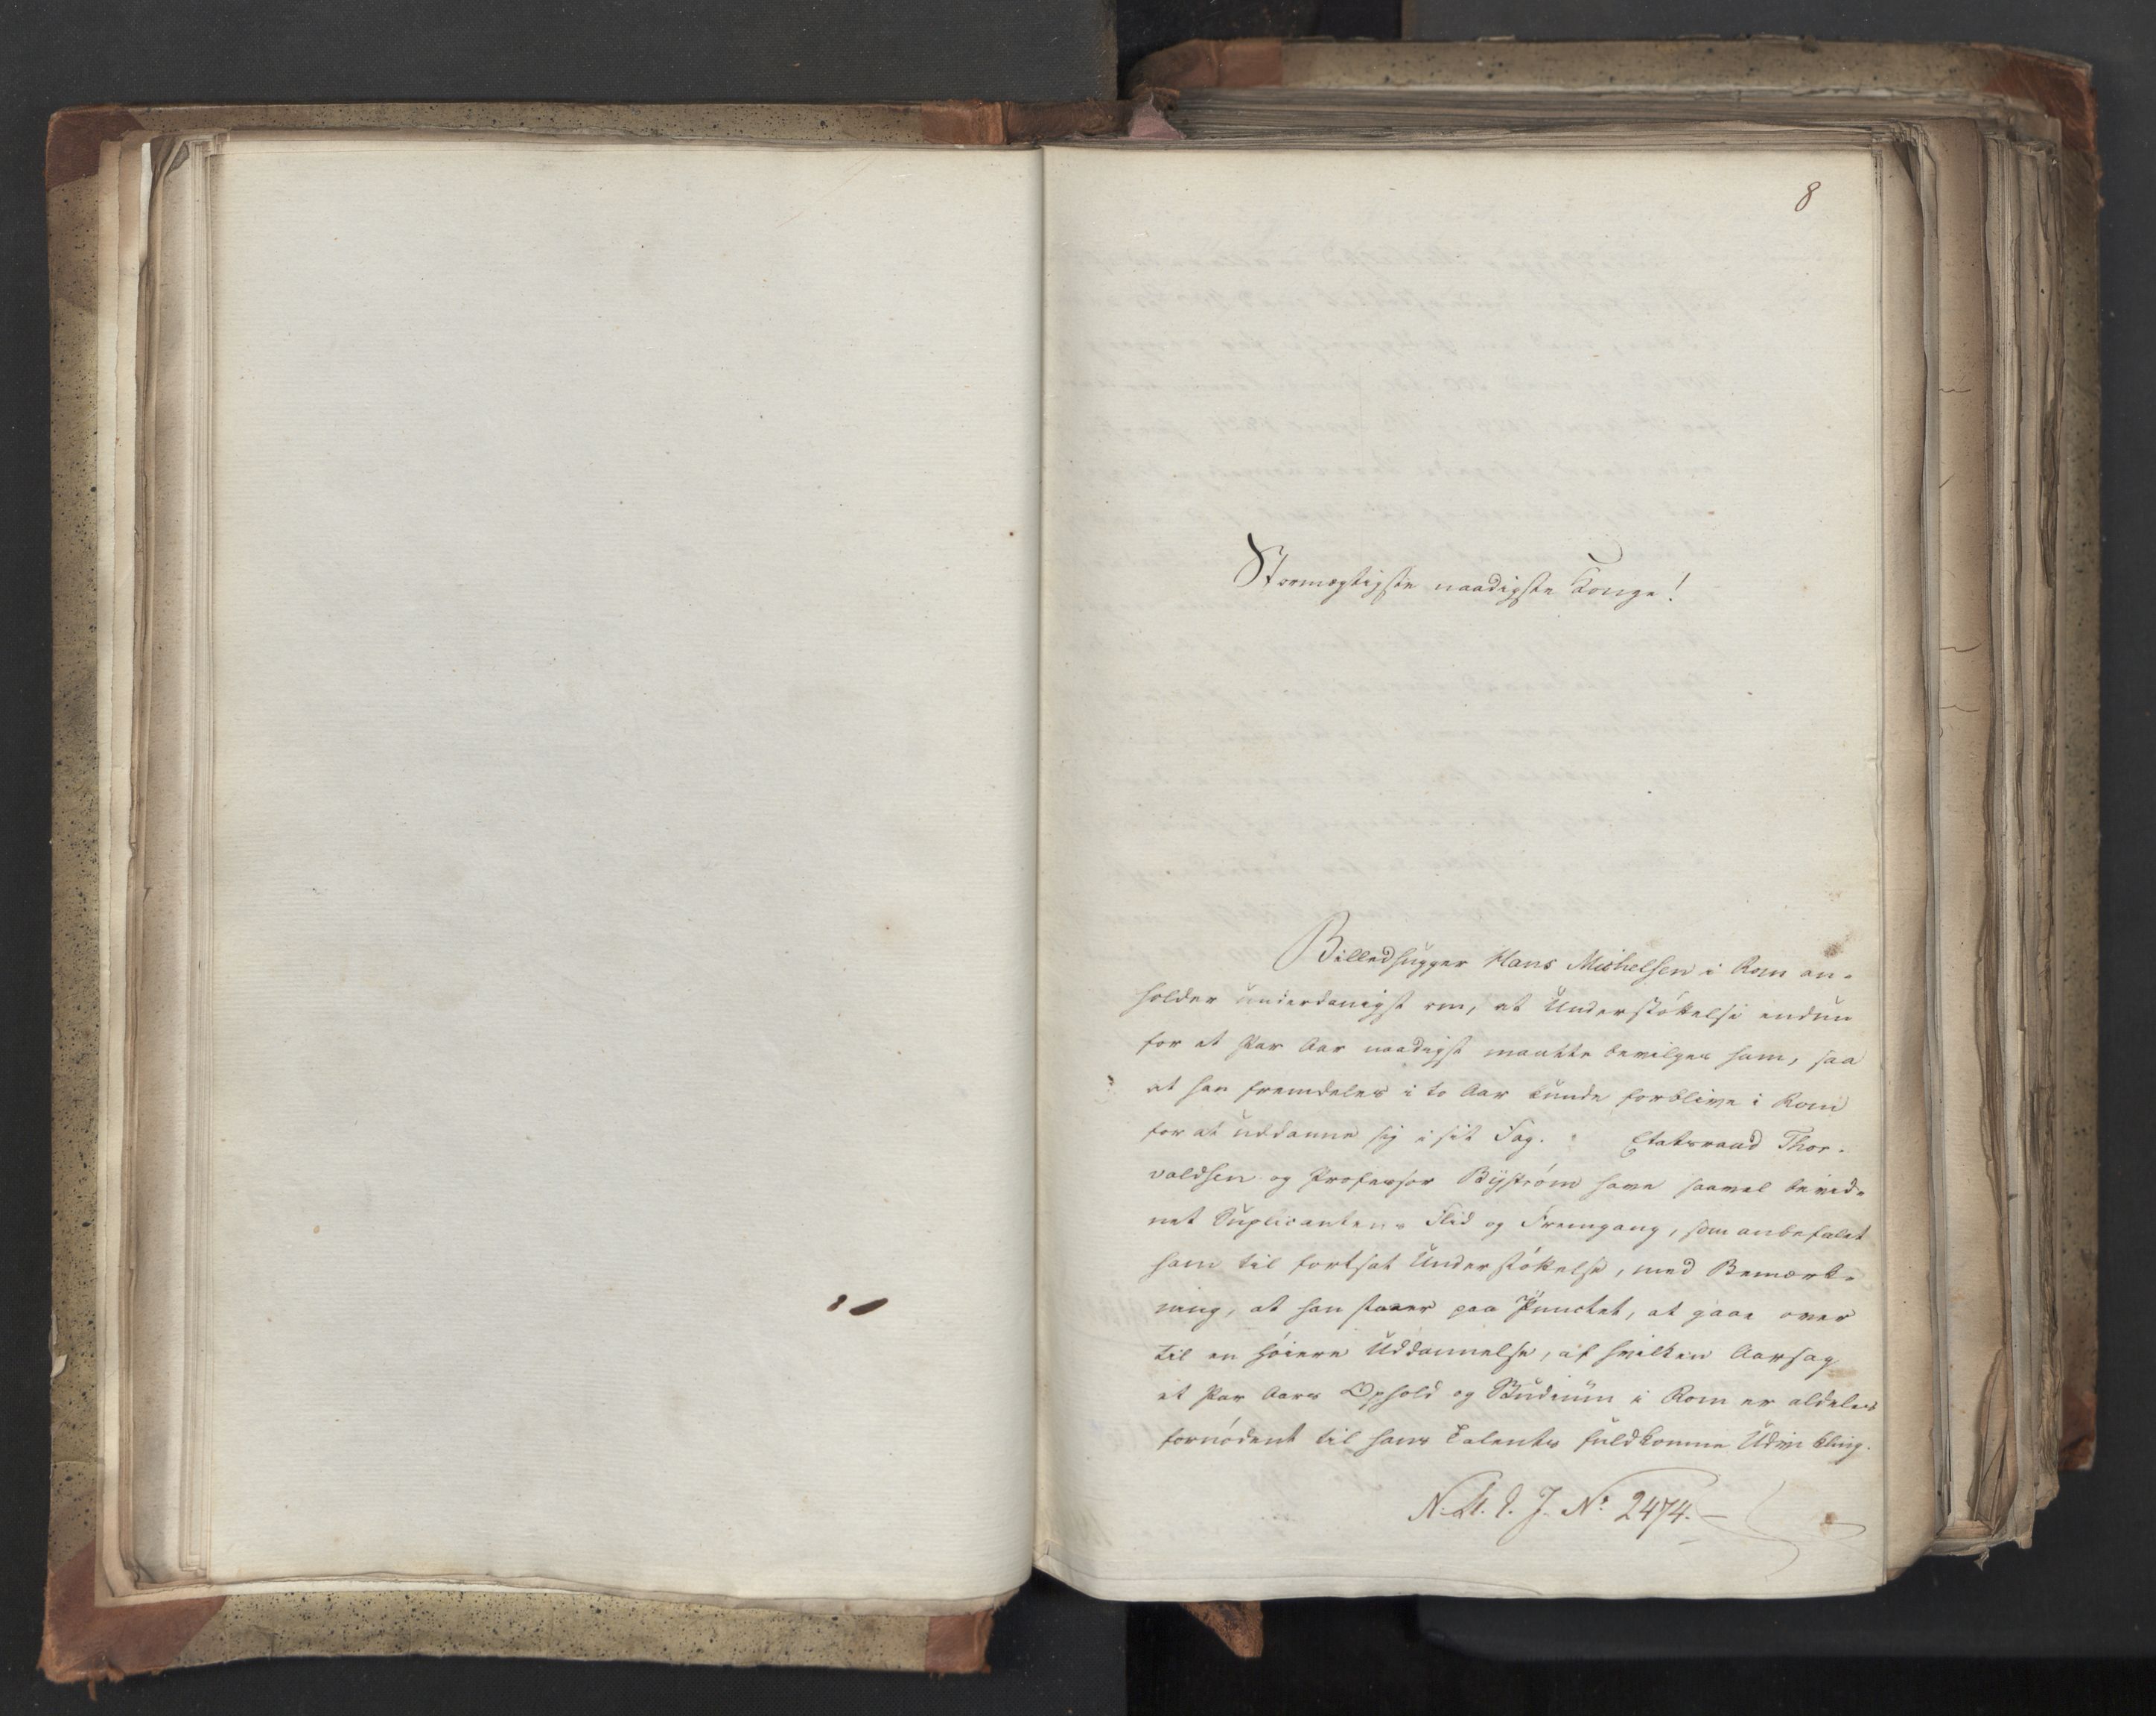 8
Stormægtigste naadigste Konge!
Billedhugger Hans Michelsen i Rom an-
holder underdanigst om, at Understöttelse endnu
for et Par Aar naadigst maatte bevilges ham, saa
at han fremdeles i to Aar kunde forblive i Rom
for at uddanne sig i sit Fag. Etatsraad Thor-
valdsen og Professor Byström have saavel bevid-
net Suplicantens Flid og Fremgang, som anbefalet
ham til fortsat Understöttelse, med Bemærk-
ning, at han staaer paa Punctet, at gaae over
til en höiere Uddannelse, af hvilken Aarsag
et Par Aars Ophold og Studium i Rom er aldeles
fornödent til hans Talents fuldkomne Udvikling.
No. 2474.